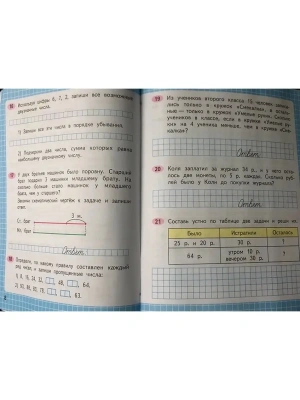 Используя цифры 6, 7, 3, запиши все возможные
двузначные числа.
1) Запиши все эти числа в порядке убывания.
2) Подчеркни два числа, сумма которых равна
наибольшему двузначному числу.
У двух братьев машинок было поровну. Старший
брат подарил 3 машинки младшему брату. На
сколько больше стало машинок у младшего
брата, чем у старшего?
Закончи схематический чертёж к задаче и запиши
ответ.
3 м.
Ст. брат
Мл. брат
Ответ:
18 Определи, по какому правилу составлен каждый
ряд чисел, и запиши пропущенные числа:
48, 64.
63.
19 Из учеников второго класса 10 человек записа-
лись только в кружок «Смекалка», а осталь-
ные — только в кружок «Умелые ручки». Сколько
учеников в классе, если в кружок «Умелые руч-
ки» на 4 ученика меньше, чем в кружок «Сме-
калка»?
Ответ:
20 Коля заплатил за журнал 34 р., и у него оста-
лось две монеты, по 5 р. каждая. Сколько руб-
лей было у Коли до покупки журнала?
Ответ:
21 Составь устно по таблице две задачи и реши их.
Было Истратили Осталось
25 р. и 20 р. 30 р. ?
64 р. утром 10 р. ?
вечером 30 р.